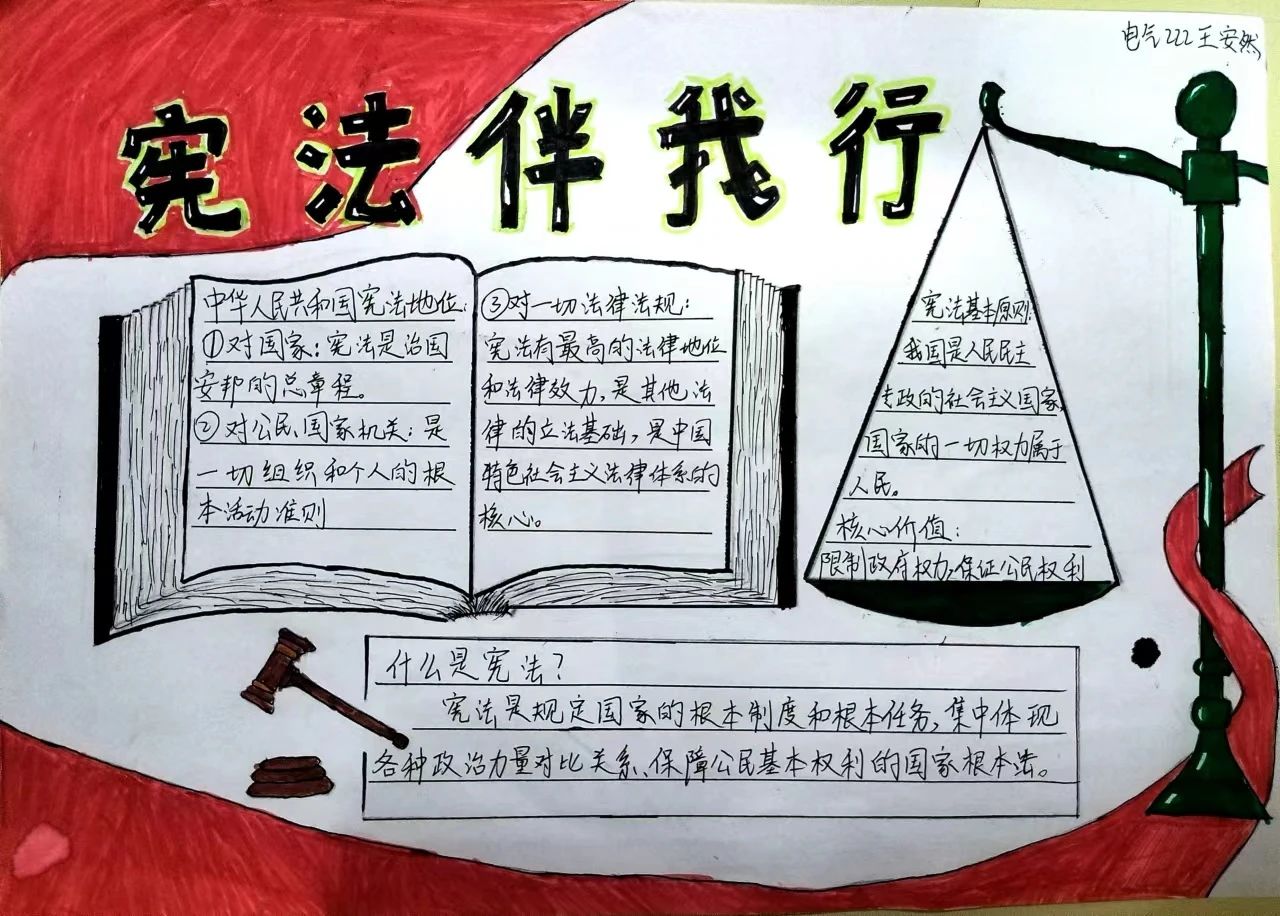 电气222王安然
宪法伴我行
中华人民共和国宪法地位:
①对国家:宪法是治国
安邦的总章程。
②对公民、国家机关:是
一切组织和个人的根
本活动准则
③对一切法律法规:
宪法有最高的法律地位
和法律效力,是其他法
律的立法基础,是中国
特色社会主义法律体系的
核心。
宪法基本原则:
我国是人民民主
专政的社会主义国家,
国家的一切权力属于
人民。
核心价值:
限制政府权力,保证公民权利
什么是宪法?
宪法是规定国家的根本制度和根本任务,集中体现
各种政治力量对比关系、保障公民基本权利的国家根本法。